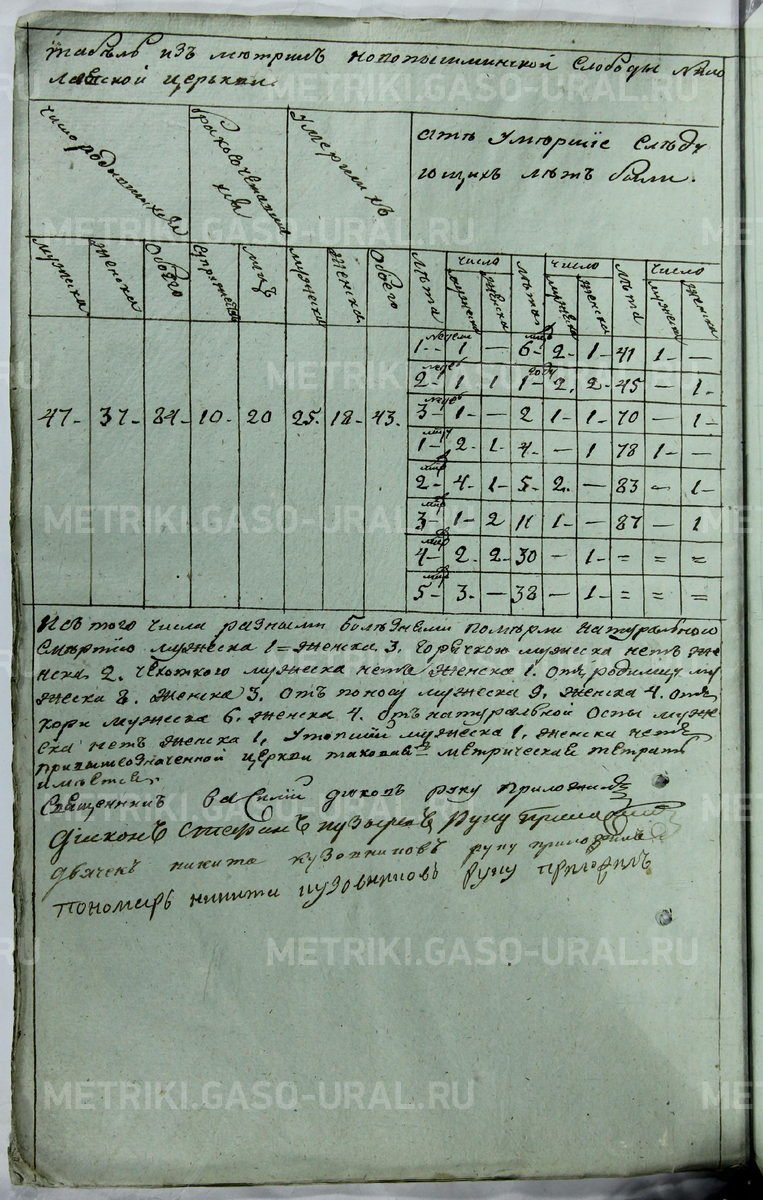 табѣль изъ метрикъ новопышминской слободы Нико
лаевской церькви.
число родившихся
бракосочетавши
хся
Умершихъ
отъ Умершіе Слѣду
ющихъ лѣтъ были.
мужеска женска обоего супружествъ лицъ мужеска женска обоего лѣта число лѣта число лѣта число
мужеска женска мужеска женска мужеска женска
недели мцъ
1 - 1 - — 6 - 2 - 1 - 41 1 - —
недѣ году
2 - 1 1 1 - 2. 2 - 45 — 1 -
недѣ
3 - 1 - — 2 1 - 1 - 70 — 1 -
47 - 37 - 84 - 10 - 20 25. 18 - 43.
мцъ
1 - 2. 1. 4 - — 1 78 1 - —
мцъ
2 - 4. 1 - 5 - 2. — 83 — 1 -
мцъ
3 - 1 - 2 11 1 - — 87 — 1
мцъ
4 - 2. 2 - 30 — 1 - = = =
мцъ
5 - 3. — 38 — 1 - = = =
Изъ того числа разными болѣзнями померли натуральною
смертію мужеска 1 = женска 3. горячкою мужеска нетъ жен
ска 2. чехоткою мужеска нетъ женска 1. отъ родимцу му
жеска 8. женска 3. отъ поносу мужеска 9. женска 4. отъ
кори мужеска 6. женска 4. отъ натуральной Оспы муже
ска нетъ женска 1, Утопшій мужеска 1, женска нетъ
при вышеозначенной церкви таковая метрическая тетрать
имѣется.
Священникъ василій руку приложилъ
Діаконъ Стефанъ пузыревъ руку приложилъ
дьячекъ никита кузовниковъ руку приложилъ
пономарь никита кузовниковъ руку приложилъ
METRIKI.GASO-URAL.RU